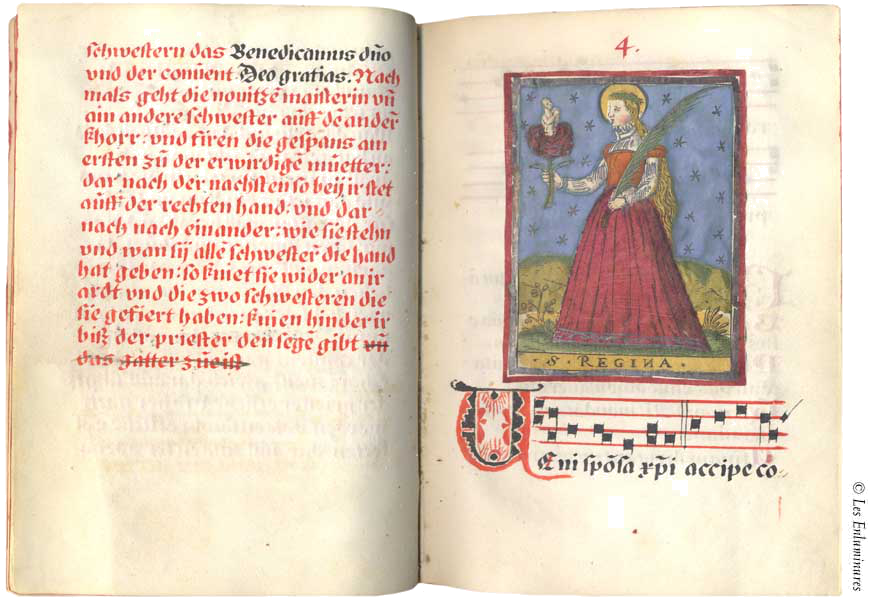 schwestern das Benedicamus dn̄o
vnd der conuent Deo gratias. Nach
mals geht die nouitzē maisterin vn̄
ain andere schwester auff dē andeř
khorr: vnd fúren die gespons am
ersten zú der erwirdigē múetter:
dar nach der nachsten so beÿ ir stet
auff der rechten hand: vnd dar-
nach nach einander: wie sie stehn
vnd wan sÿ allē schwesterē die hand
hat geben: so kniet sie wider an ir
ardt vnd die zwo schwesteren die
sie gefiert haben: knien hinder ir
biß der priester den segē gibt vn̄
das gatter
4.
S. REGINA.
Ueni spōsa xp̄i accipe co-
© Les Enluminures